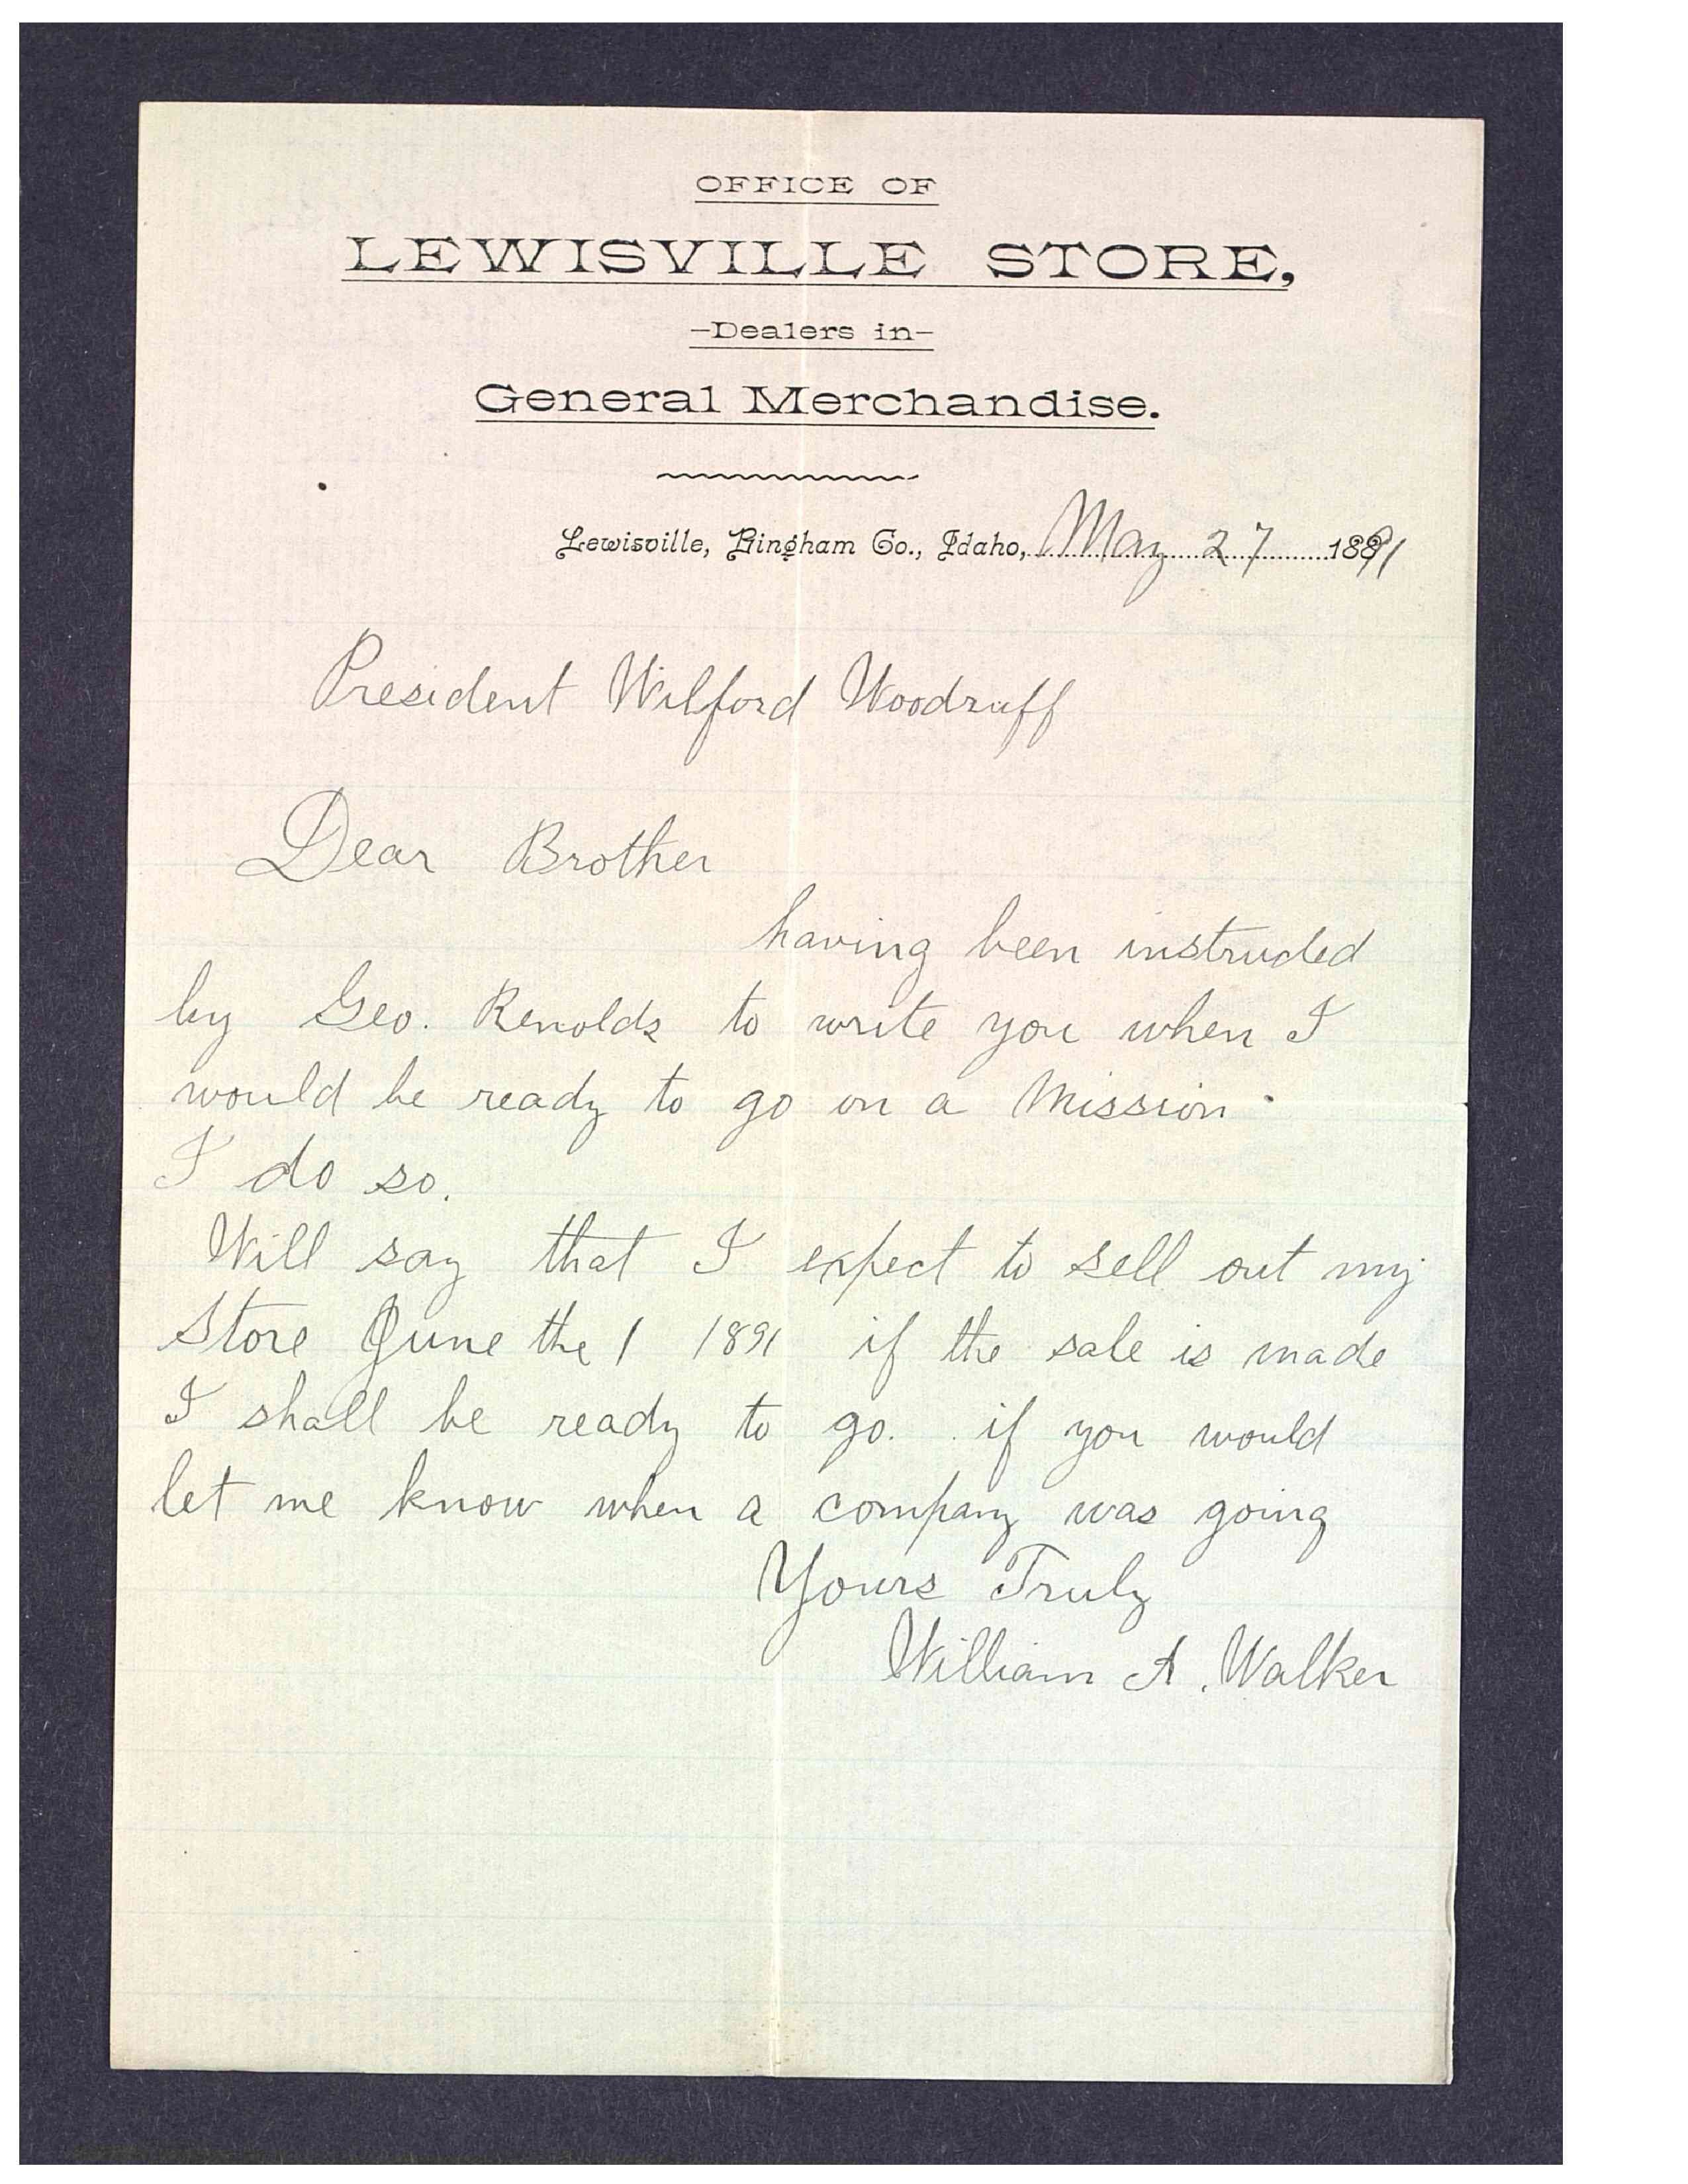 OFFICE OF
LEWISVILLE STORE,
-Dealers in-
General Merchandise.
Lewisville, Bingham Co., Idaho, May 27 1891
President Wilford Woodruff
Dear Brother
having been instructed
by Geo. Renolds to write you when I
would be ready to go on a Mission.
I do so.
Will say that I expect to sell out my
Store June the 1 1891 if the sale is made
I shall be ready to go. if you would
let me know when a company was going
Yours Truly
William A. Walker